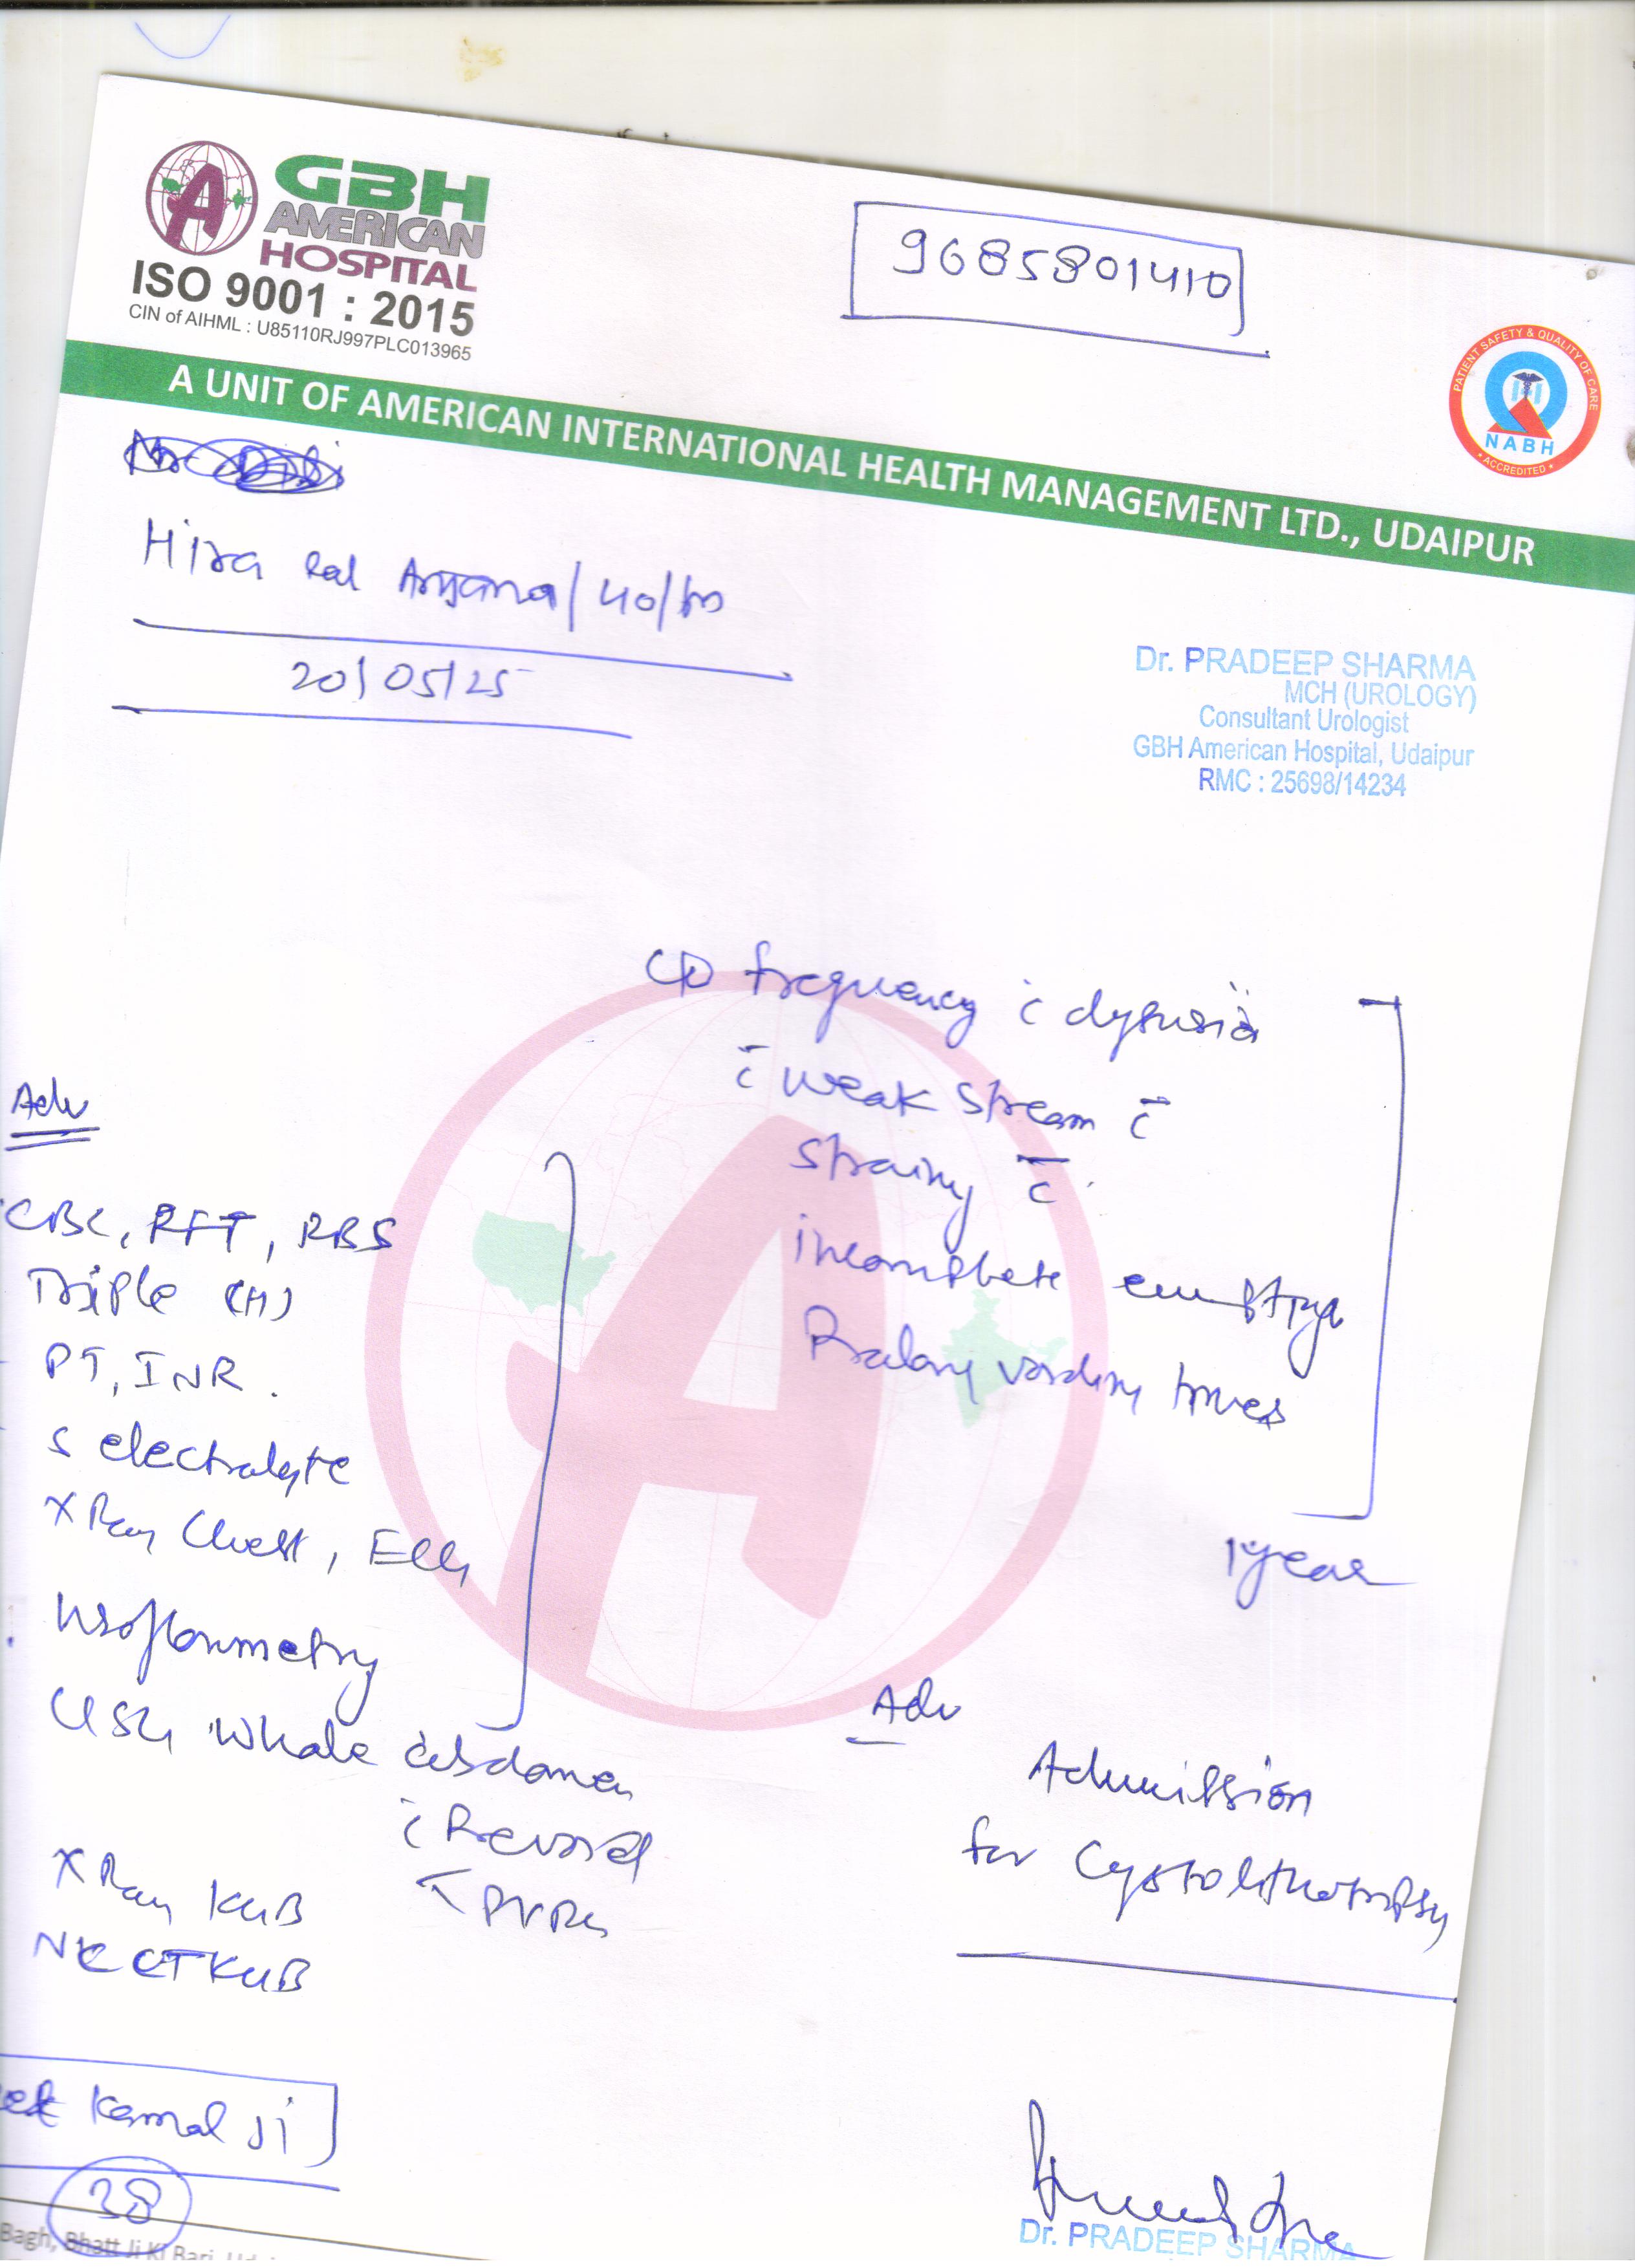 GBH
AMERICAN
HOSPITAL
ISO 9001 : 2015
CIN of AIHML : U85110RJ997PLC013965
9685801410
PATIENT SAFETY & QUALITY OF CARE
NABH
ACCREDITED
A UNIT OF AMERICAN INTERNATIONAL HEALTH MANAGEMENT LTD., UDAIPUR
Hira Lal /40/m
20/05/25
Dr. PRADEEP SHARMA
MCH (UROLOGY)
Consultant Urologist
GBH American Hospital, Udaipur
RMC : 25698/14234
frequency c̄ dysuria
c̄ weak stream c̄
straining c̄
incomplete
voiding times
1 year
Adv
CBC, RFT, RBS
Triple (H)
PT, INR.
S electrolyte
X Ray Chest, ECG
Uroflowmetry
USG whole abdomen
c̄ Prevoid
PVRU
X Ray KUB
NCCT KUB
Adv
Admission
for Cystolithotripsy
Kamal Ji
38
Dr. PRADEEP SHARMA
Bagh, Bhatt Ji Ki Bari,